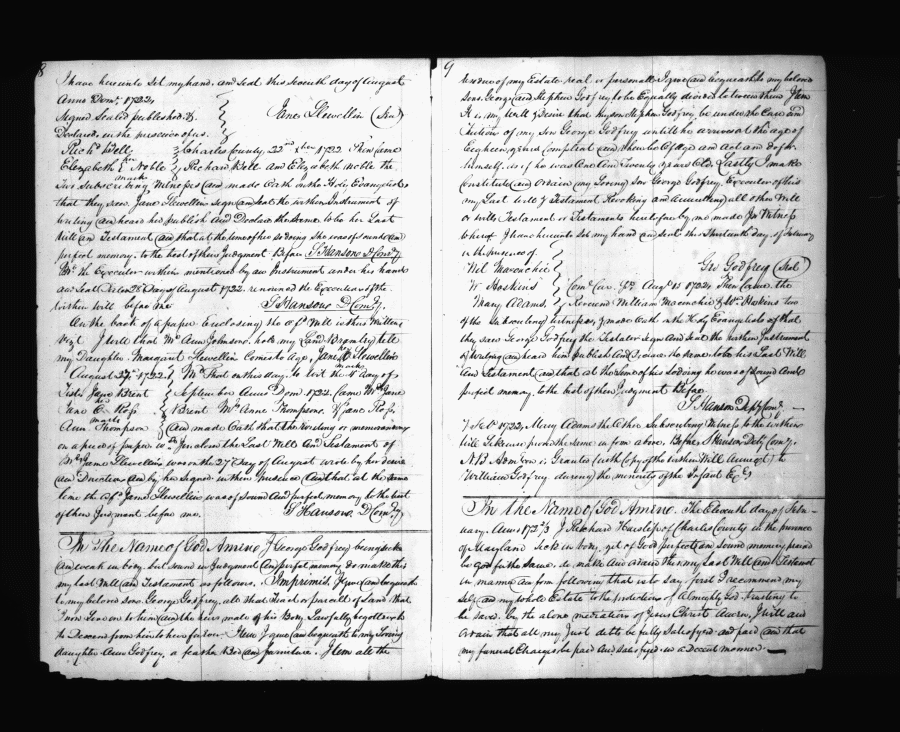 8
I have hereunto Set my hand and Seal this Seventh day of August
Anno Domi 1722,
Signed Sealed published &
Jane Llewellin (Seal)
Declared in the presence of us.
Richd Bell
Charles County, 1722 Then came
Elizabeth her Noble
mark
Richard Bell and Elizabeth Noble the
two Subscribing Witnesses and made Oath on the Holy Evangelists
that they saw Jane Llewellin Sign and Seal the within Instrument of
Writing and heard her publish And Declare the same to be her Last
Will and Testament and that at the time of her so doing she was of sound and
perfect memory, to the best of their Judgment Before S Hanson D Comry
the Executor within mentioned by an Instrument under his hand
and Seal Dated 28 Day of August 1722. renounced the Executorship of the
within will before me
S Hanson D Comry.
On the back of a paper Enclosing the afsd Will is thus Written
Vizt I will that Mr Ann Johnson hold my Land Bromley till
my Daughter Margaret Llewellin Comes to Age, Jane Llewellin
mark
August 27th 1722
Md That on this day to wit the Day of
Test Jane Brent
September Anno Dom 1722. Came Mrs Jane
Jane C Ross
marke
Brent Mrs Anne Thompson, & Jane Ross
Ann Thompson
And made Oath that the Writing or memorandum
on a piece of paper Inclose the Last Will And Testament of
Mrs Jane Llewellin was on the 27 Day of August wrote by her desire
and Directions and by her Signed in their Presence And that at the same
time the afd Jane Llewellin was of Sound And perfect memory to the best
of their Judgment before me.
S Hanson. D Comry
In The Name of God Amine I George Godfrey being sick
and weak in body, but sound in Judgment and perfect memory do make this
my last Will and Testament as follows. Impremis I give and bequeath
to my beloved Son George Godfrey, all that Tract or parcel of Land that
I now Live on to him and the heirs male of his Body Lawfully begotten &
to Descend from heir to heir for Ever. Item I give and bequeath to my Loving
daughter Ann Godfrey, a feather Bed and furniture. Item all the
9
residue of my Estate real or personall I give and bequeath to my beloved
Sons George and Stephen Godfrey to be Equally divided between them Item
It is my Will & Desire that my son Stephen Godfrey be under the Care and
Tuition of my son George Godfrey untill he arrives at the age of
Eighteen years Compleat and then to be of Age and Act and do for
himself as if he was One and Twenty Years Old. Lastly I make
Constitute and Ordain my Loving Son George Godfrey, Executor of this
my Last Will & Testament Revoking and Annulling all other Will
or Wills Testament or Testaments heretofore by me made In Witness
whereof I have hereunto set my hand and Seal this thirteenth day of February
in the presence of
Geo Godfrey (Seal
Wil Maconchie
W Hoskins
Augt 15 1722, Then Came the
Mary Adams.
Reverend William Maconchie & Hoskins two
of the Subscribing witnesses, & made Oath on the Holy Evangelists of that
they saw George Godfrey the Testator sign And Seal the within Instrument
of Writing and heard him publish And Declare the same to be his Last Will
And Testament and that at the time of his so doing he was of Sound And
perfect memory to the best of their Judgment Before
S Hanson Depty Comry
7 Febry 1722, Mary Adams the other Subscribing Witness to the within
will Likewise proved the same in form above. Before S Hanson Depty Comry.
NB Admcon is Granted with Copy of the within Will Annexed to
William Godfrey during the minority of the Infant Exr
In the Name of God Amine. The Eleventh day of Febru-
uary. Anno 1722/3 I Richard Harrison of Charles County in the Province
of Maryland Sick in body, yet of Good perfect and sound memory praised
be God for the same. do make And ordain this my Last Will and Testament
in manner and form following, that is to say first I recommend my
self and my whole Estate to the protection of Almighty God. trusting to
be saved by the alone mediation of Jesus Christ Amen. I will and
ordain that all my Just debts be fully Satisfyed and paid and that
my funeral Charges be paid and Satisfyed in a Decent manner.